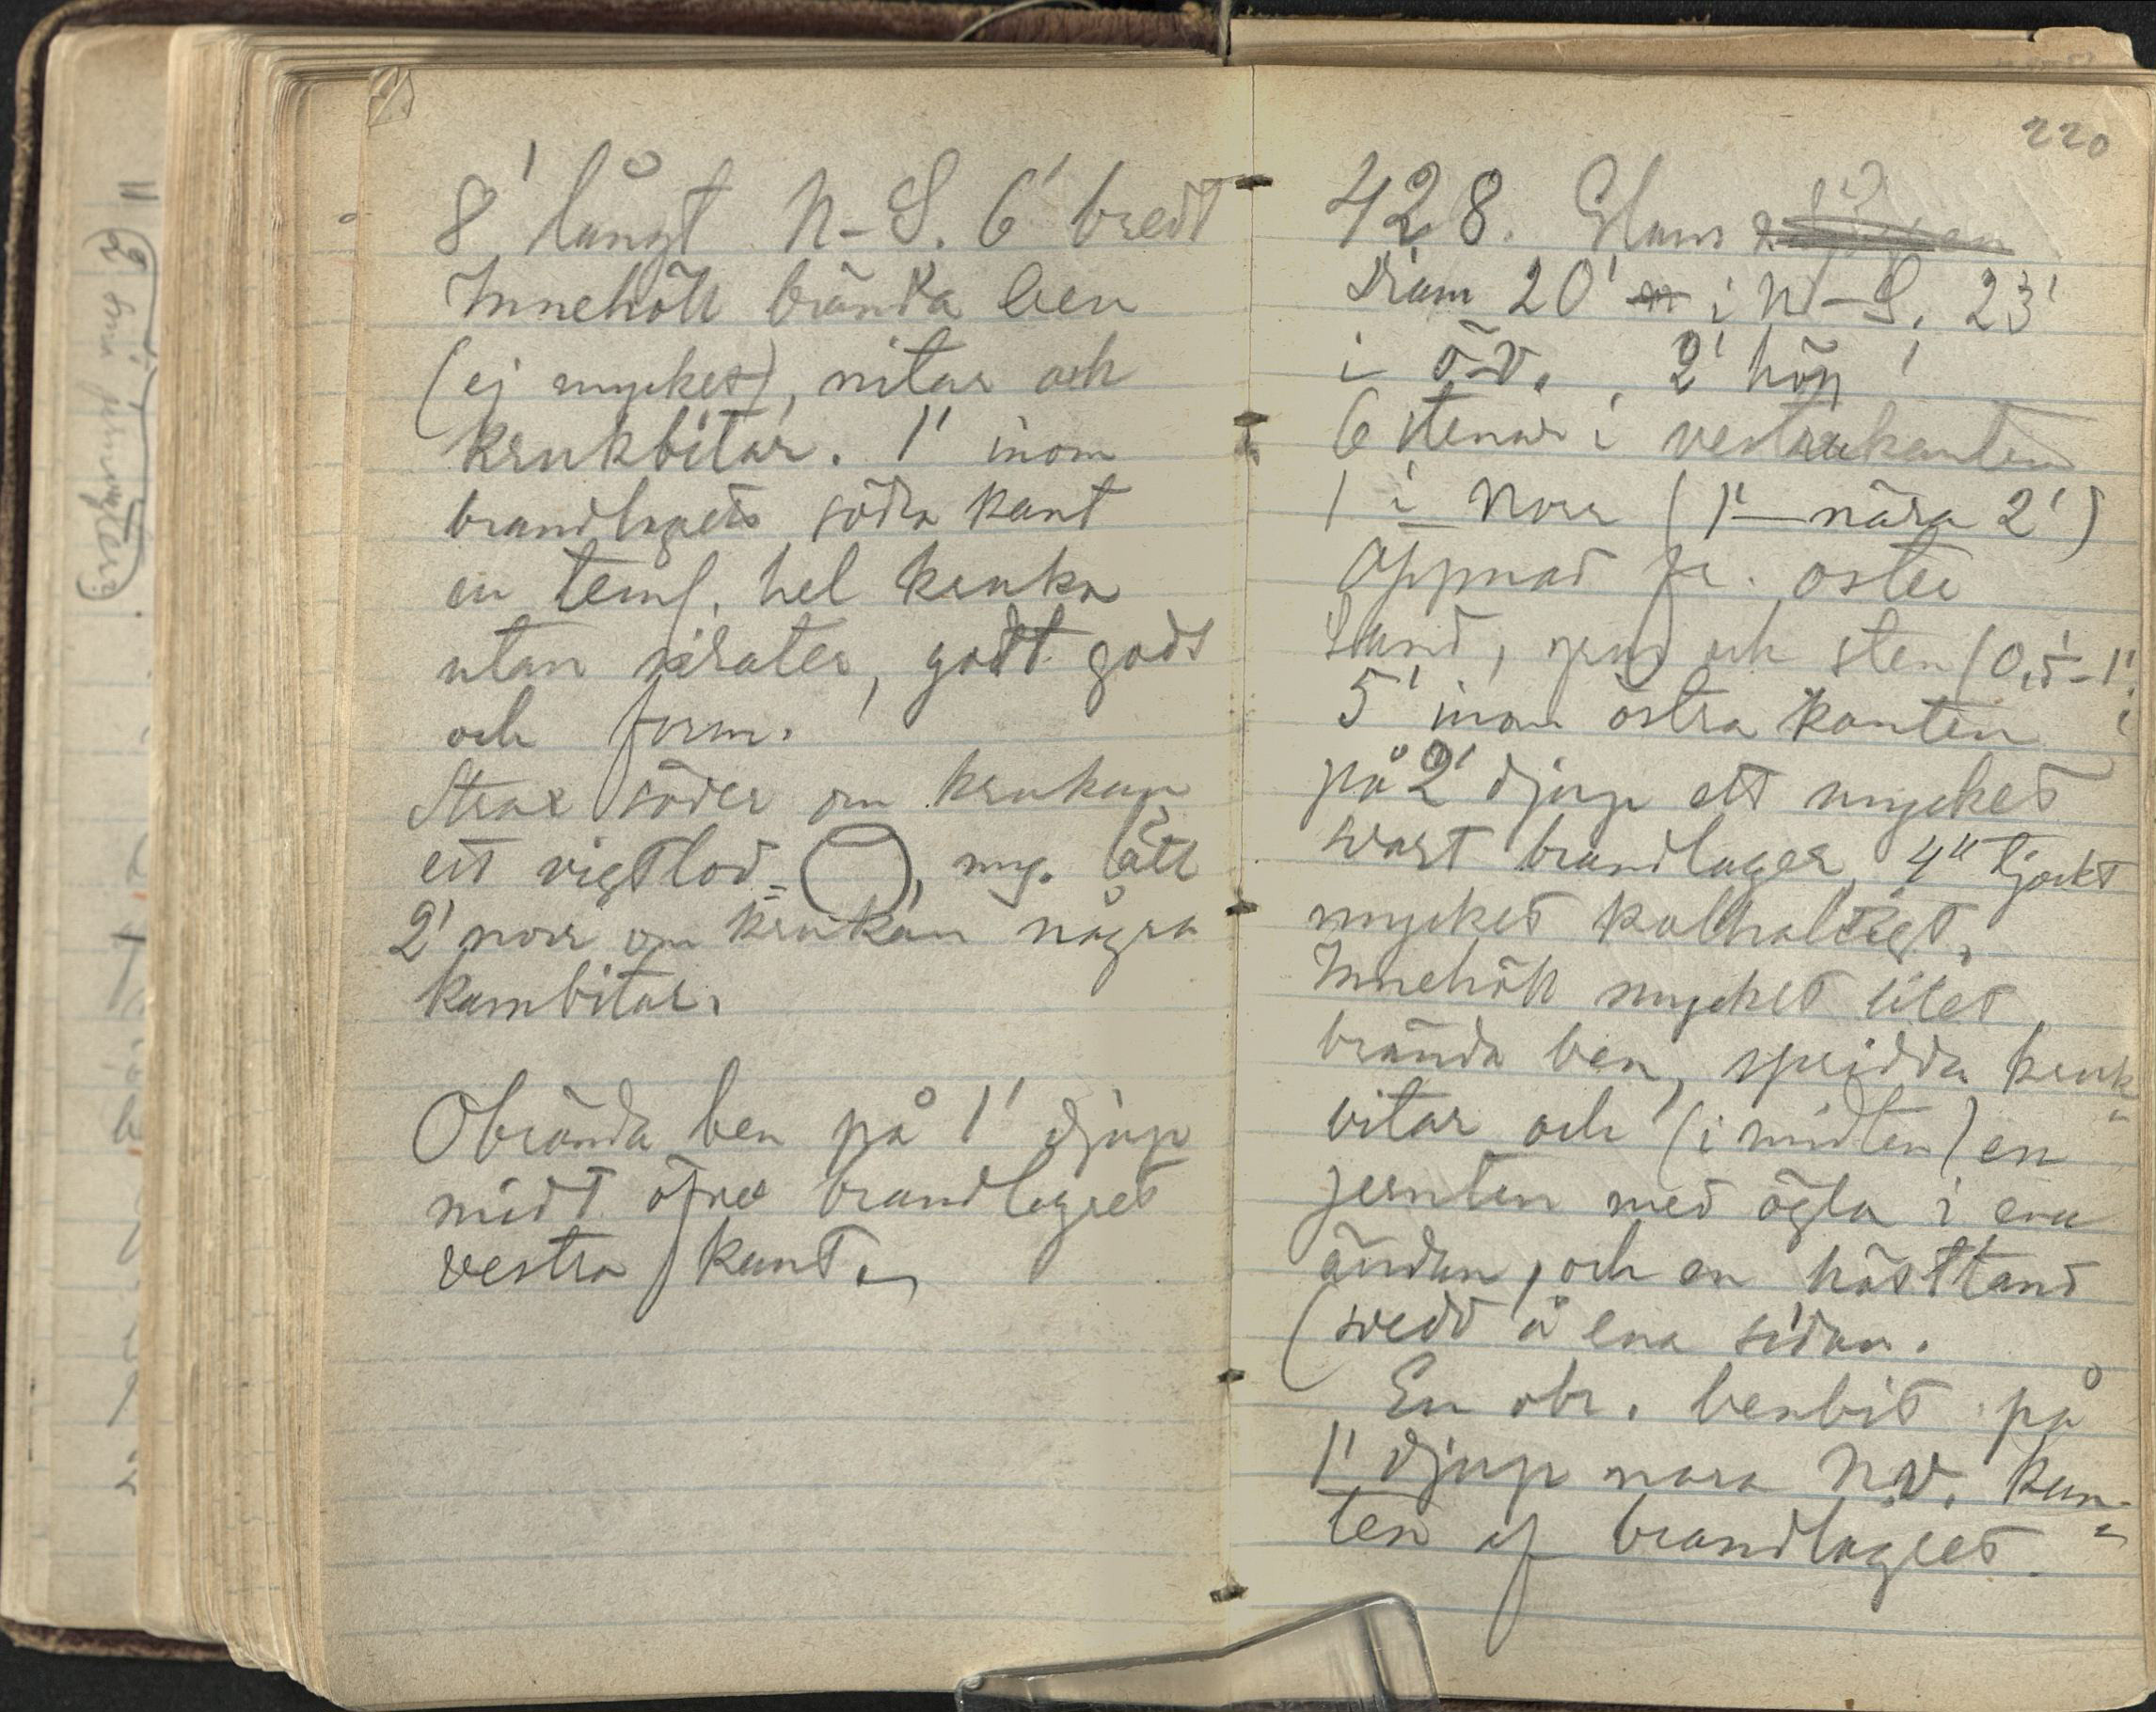 8' långt N-S. 6' bredt
Innehöll brända ben
(ej mycket), nitar och
krukbitar. 1' inom
brandlagrets södra kant
en teml. hel kruka
utan sirater, godt gods
och form.
Strax söder om krukan
ett vigtlod, my. lätt
2' norr om krukan några
kambitar.
Obrända ben på 1' djup
midt öfver brandlagrets
vestra kant.
220
428. Glam
Diam 20' i N-S, 23'
i Ö-V. 2' hög
6 stenar i vestra kanten
1 i Norr (1'-nära 2')
Öppnad fr. öster
Sand, grus och sten (0,5'-1'.
5' inom östra kanten
på 2' djup ett mycket
svart brandlager, 4" tjockt
mycket kolhaltigt,
Innehöll mycket litet
brända ben, spridda kruk
bitar och (i midten) en
jernten med ögla i ena
ändan, och en hästtand
(svedd å ena sidan.
En obr. benbit på
1' djup nära N.V. kan-
ten af brandlagret